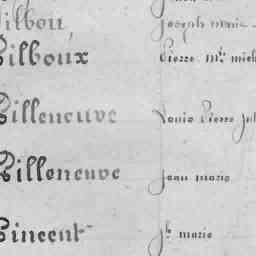 Vilbou, Joseph marie
Vilboux Pierre Mie mich
Villeneuve Louis Pierre Jul
Villeneuve Jean marie
Vincent Jh marie